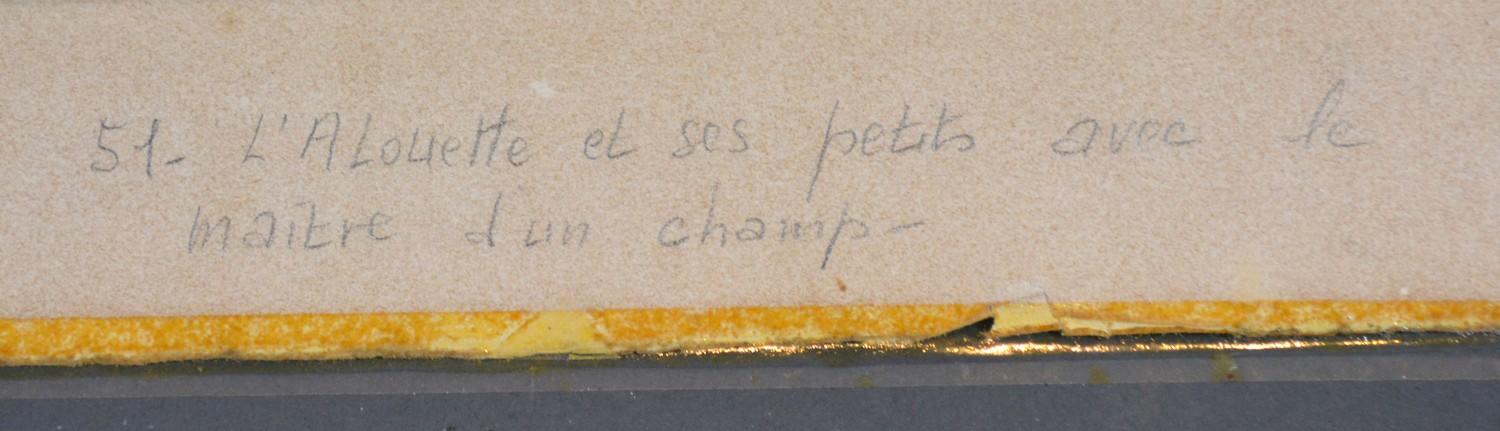 51- L'ALouette et ses petits avec le
maitre d'un champ-